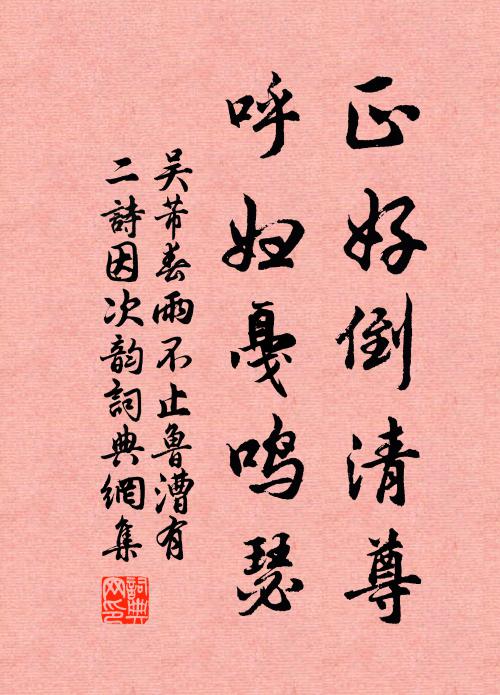 正好倒清尊
呼妇戛鸣瑟
吴芾春雨不止鲁漕有
二詩因次韵詞典網集
詞典网印